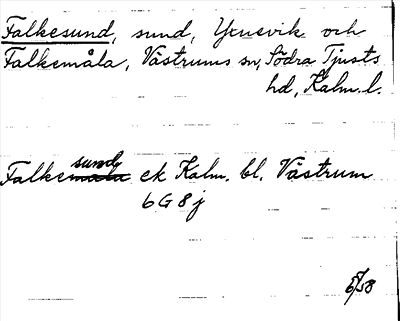 Falkesund, sund, Ytnevik och
Falkemåla, Västrums sn, Södra Tjusts
hd, Kalm. l.
Falkesund ek Kalm. bl. Västrum
6G8j
58